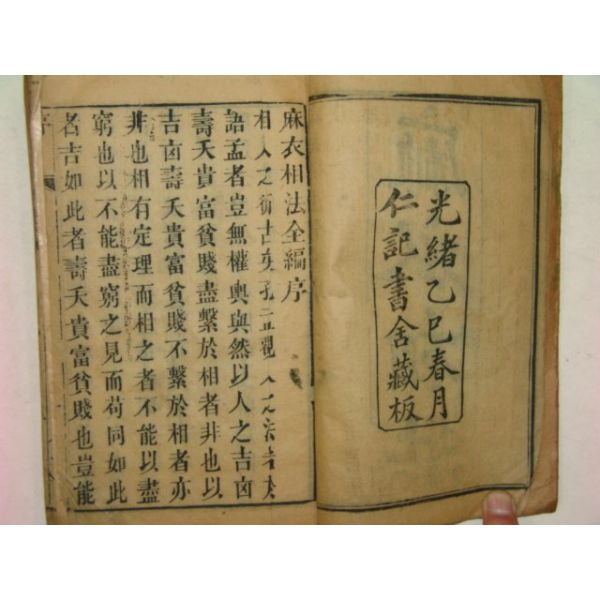 光緒乙巳春月
仁記書舍藏板
麻衣相法全編序
相人之術古矣孔孟觀人之法者大
語孟者豈無權輿與然以人之吉凶
壽夭貴富貧賤盡繫於相者非也以
吉凶壽夭貴富貧賤不繫於相者亦
非也相有定理而相之者不能以盡
窮也以不能盡窮之見而苟同如此
者吉如此者壽夭貴富貧賤也豈能
序